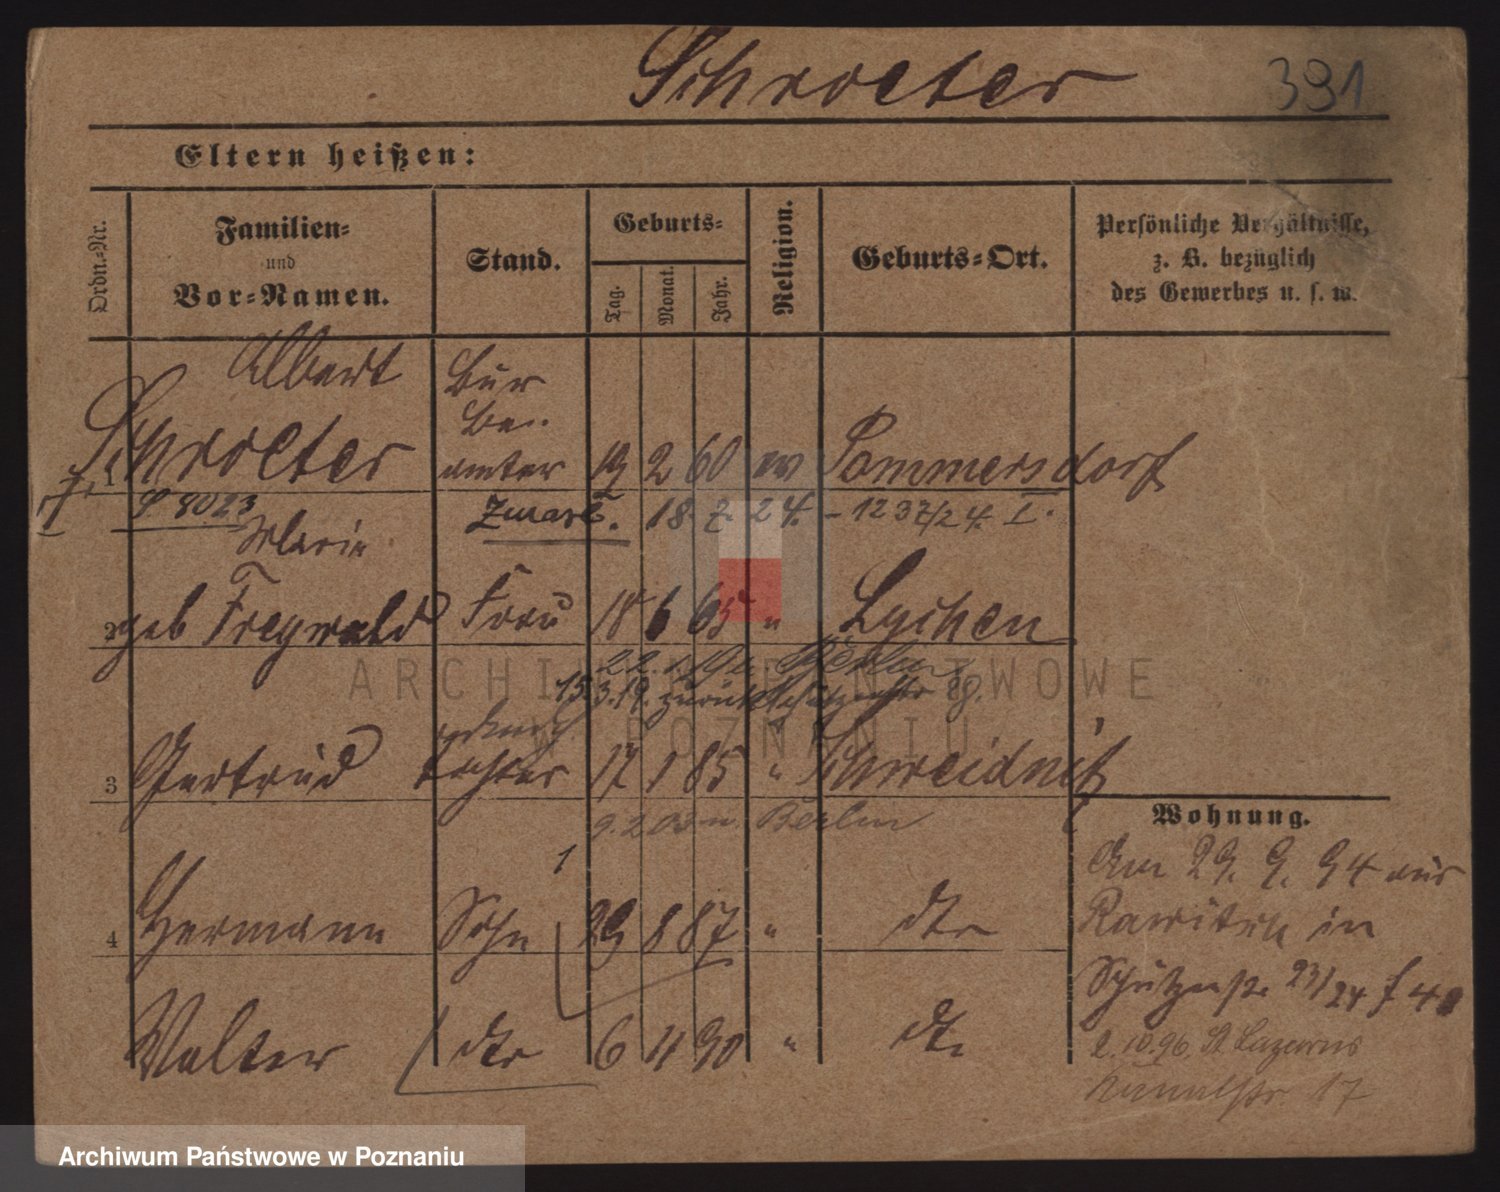 Schroeter
391
Eltern heißen:
Ordn.-Nr.
Familien-
und
Vor-Namen.
Stand.
Geburts-
Tag.
Monat.
Jahr.
Religion.
Geburts-Ort.
Persönliche Verhältnisse,
z. B. bezüglich
des Gewerbes u. s. w.
Albert
Schroeter
Bür
Be..
amter
19 2 60 ev Pommersdorf
1
8023
Zmarł. 18. 7. 24. - 1237/24. I.
Marie
2 geb Freywald Frau 18 6 65 " Lychen
Berlin
15.3.19. zurück
3 Gertrud Tochter 17 1 85 " Schweidnitz
9. 2 03 n. Berlin
Wohnung.
1
4 Hermann Sohn 29 8 87 " dto
Walter dto 6 11 90 " dto
Am 29. 9. 94 aus
Rawitsch in
Schützenstr 23/24 f 40
2.10.96. St Lazarus
17
ARCHIWUM PAŃSTWOWE
W POZNANIU
Archiwum Państwowe w Poznaniu